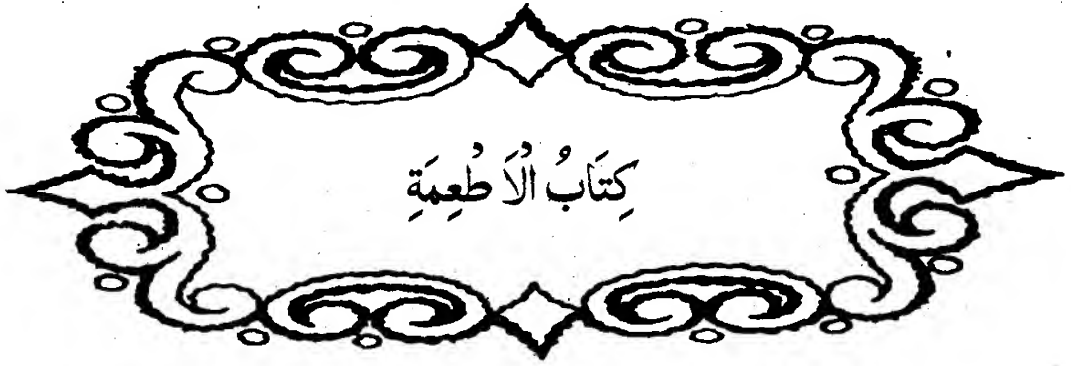 كِتَابُ الْاَطْعِمَةِ